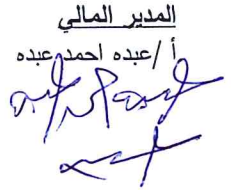 المدير المالي
أ /عبده احمد عبده